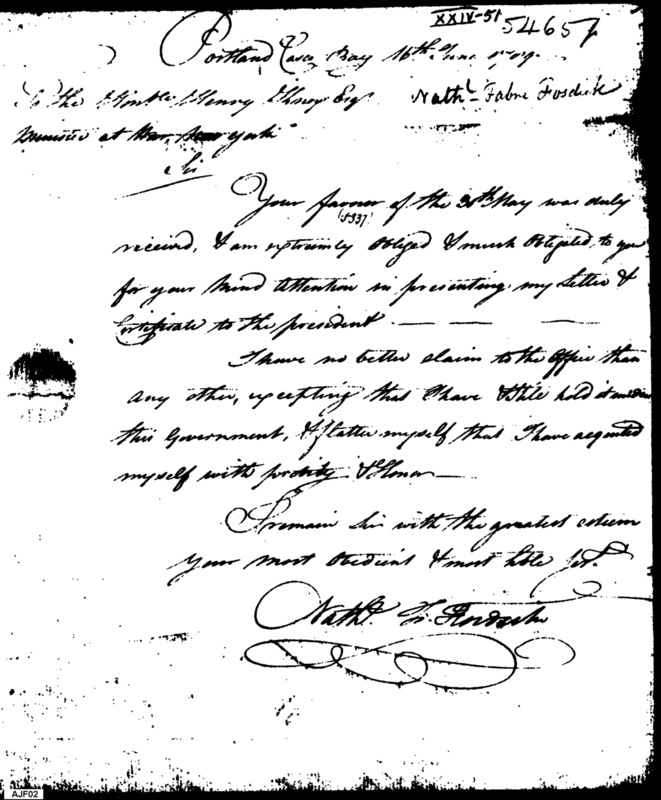 XXIV-51
54657
Portland Casco Bay 16th June 1789.
To the Honble Henry Knox Esqr
Nathl Fabre Fosdick
Minister at War, New york
Sir
Your favour of the 30th May was duly
5337
received, & am extremly obliged & much obligated, to you
for your kind Attention in presenting my Letter &
Certificate to the president — — —
I have no better claim to the Office than
any other, excepting that I have & still hold it under
this Government, & flatter myself that I have acquitted
myself with probity & Honor —
I remain Sir with the greatest esteem
Your most Obedient & most hble Sert.
Nathl F. Fosdick
AJF02